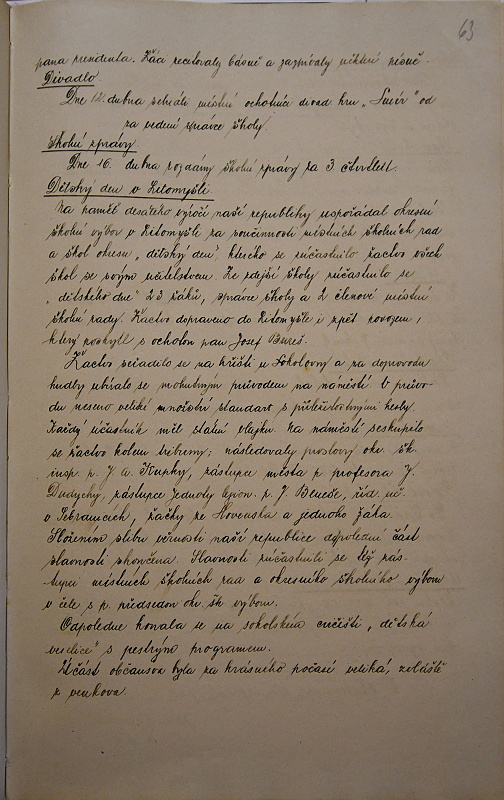 63
pana presidenta. Žáci recitovaly básně a zazpívaly některé písně.
Divadlo.
Dne 12. dubna sehráli místní ochotníci divad. hru „Smír" od
za vedení správce školy.
Školní zprávy.
Dne 16. dubna rozdány školní zprávy za 3. čtvrtletí.
Dětský den v Litomyšli.
Na paměť desátého výročí naší republiky uspořádal okresní
školní výbor v Litomyšli za součinnosti místních školních rad
a škol okresu „dětský den", kterého se zúčastnilo žactvo všech
škol se svým učitelstvem. Ze zdejší školy zúčastnilo se
„dětského dne" 23 žáků, správce školy a 2 členové místní
školní rady. Žactvo dopraveno do Litomyšle i zpět povozem,
který poskytl s ochotou pan Josef Bureš.
Žactvo seřadilo se na hřišti u Sokolovny a za doprovodu
hudby ubíralo se mohutným průvodem na náměstí. V průvo-
du neseno veliké množství standart s příležitostnými hesly.
Každý účastník měl státní vlajku. Na náměstí seskupilo
se žactvo kolem tribuny; následovaly proslovy okr. šk.
insp. p. J. A. Kupky, zástupce města p. profesora J.
zástupce Jednoty legion. p. J. Beneše, říd. uč.
v Sebranicích, žačky ze Slovenska a jednoho žáka.
Složením slibu věrnosti naší republice dopolední část
slavnosti skončena. Slavnosti zúčastnili se též zás-
tupci místních školních rad a okresního školního výboru
v čele s p. předsedou okr. šk. výboru.
Odpoledne konala se na sokolském cvičišti „dětská
veselice" s pestrým programem.
Účast občanstva byla za krásného počasí veliká, zvláště
z venkova.